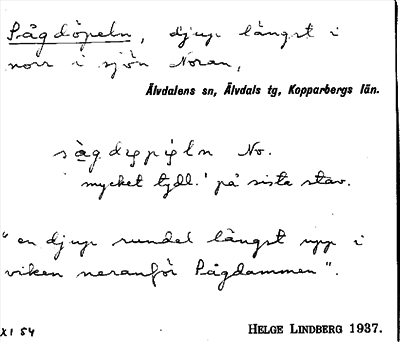 Sågdöpeln, djup längst i
norr i sjön Noran,
Älvdalens sn, Älvdals tg, Kopparbergs län.
No.
mycket tydl. ' på sista stav.
"en djup rundel längst upp i
viken neranför Sågdammen".
XI 54 HELGE LINDBERG 1937.